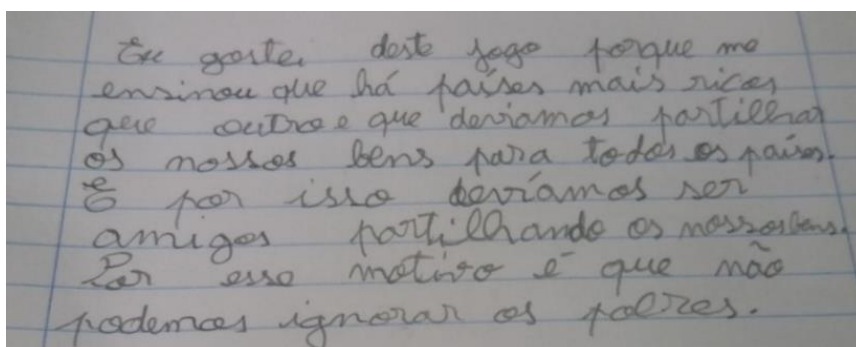 Eu gostei deste jogo porque me
ensinou que há países mais ricos
que outro e que deviamos partilhar
os nossos bens para todos os países.
E por isso devíamos ser
amigos partilhando os nossos bens.
Por esse motivo é que não
podemos ignorar os pobres.